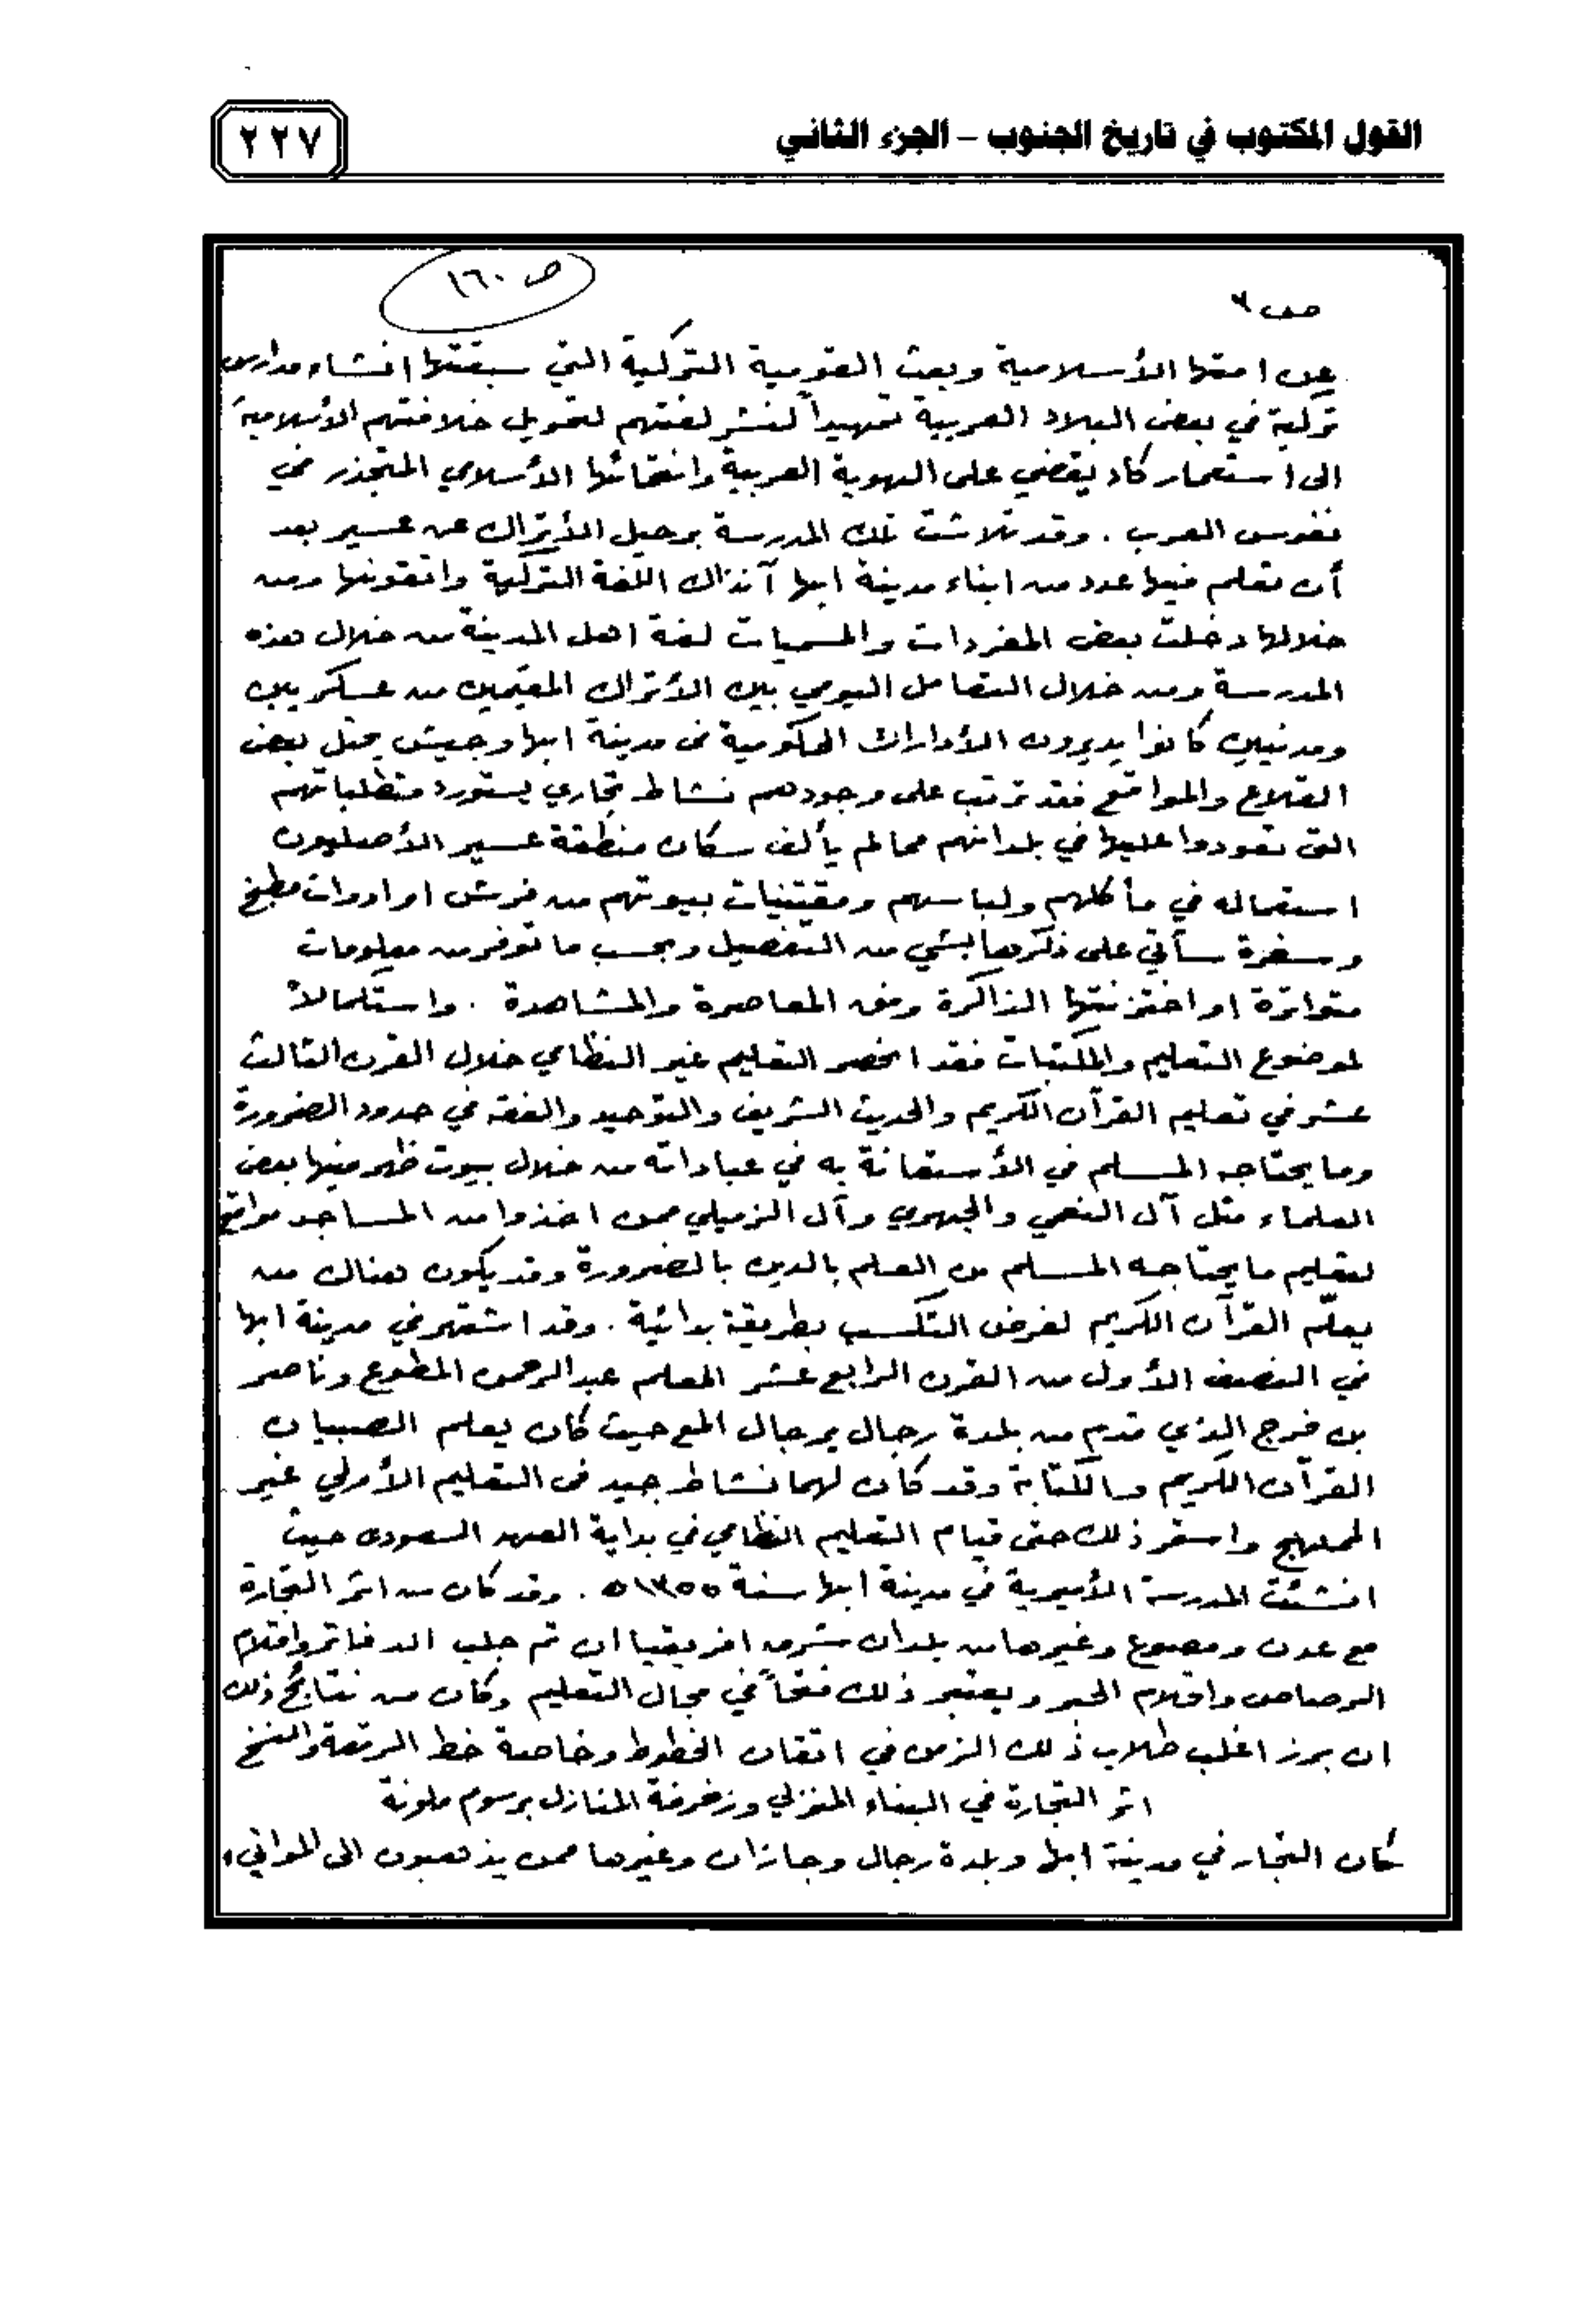 القول المكتوب في تاريخ الجنوب – الجزء الثاني
٢٢٧
ص ١٦٠
ص ٦
عن امتها الأسلامية وبعث القومية التركية التي سبقتها انشاء مدارس
تركية في بعض البلاد العربية تمهيداً لنشر لغتهم لتحويل خلافتهم الأسلامية
الى استعمار كاد يقضي على الهوية العربية وانتمائها الأسلامي المتجذر في
نفوس العرب . وقد تلاشت تلك المدرسة برحيل الأتراك عن عسير بعد
أن تعلم فيها عدد من ابناء مدينة ابها آنذاك اللغة التركية واتقونها ومن
خلالها دخلت بعض المفردات والمسميات لغة اهل المدينة من خلال هذه
المدرسة ومن خلال التعامل اليومي بين الأتراك المقيمين من عسكريين
ومدنيين كانوا يديرون الأدارات الحكومية في مدينة ابها وجيش يحتل بعض
القلاع والمواقع فقد ترتب على وجودهم نشاط تجاري يستورد متطلباتهم
التي تعودوا عليها في بلدانهم مما لم يألف سكان منطقة عسير الأصليون
استعماله في مأكلهم ولباسهم ومقتنيات بيوتهم من فرش او ادوات مطبخ
وسفرة سآتي على ذكرها بشي من التفصيل وبحسب ما توفر من معلومات
متواترة او اختزنتها الذاكرة وفق المعاصرة والمشاهدة . واستكمالاً
لموضوع التعليم والمكتبات فقد انحصر التعليم غير النظامي خلال القرن الثالث
عشر في تعليم القرآن الكريم والحديث الشريف والتوحيد والفقه في حدود الضرورة
وما يحتاجه المسلم في الأستعانة به في عباداته من خلال بيوت ظهر فيها بعض
العلماء مثل آل النعمي والجهري وآل الزميلي ممن اخذوا من المساجد مواقع
لتعليم ما يحتاجه المسلم من العلم بالدين بالضرورة وقد يكون هناك من
يعلّم القرآن الكريم لغرض التكسب بطريقة بدائية . وقد اشتهر في مدينة ابها
في النصف الأول من القرن الرابع عشر المعلم عبدالرحمن المطوع وناصر
بن فرج الذي قدم من بلدة رجال برجال المع حيث كان يعلم الصبيان
القرآن الكريم والكتابة وقد كان لهما نشاط جيد في التعليم الأولي غير
الممنهج واستمر ذلك حتى قيام التعليم النظامي في بداية العهد السعودي حيث
انشئت المدرسة الأميرية في مدينة ابها سنة ١٣٥٥ه . وقد كان من اثر التجارة
مع عدن ومصوع وغيرها من بلدان شرق افريقيا ان تم جلب الدفاتر واقلام
الرصاص واقلام الحبر ويعتبر ذلك فتحاً في مجال التعليم وكان من نتائج ذلك
ان برز اغلب طلاب ذلك الزمن في اتقان الخطوط وخاصة خط الرقعة والنسخ
اثر التجارة في البناء المنزلي وزخرفة المنازل برسوم ملونة
كان التجار في مدينة ابها وبلدة رجال وجازان وغيرها ممن يذهبون الى الموانيء